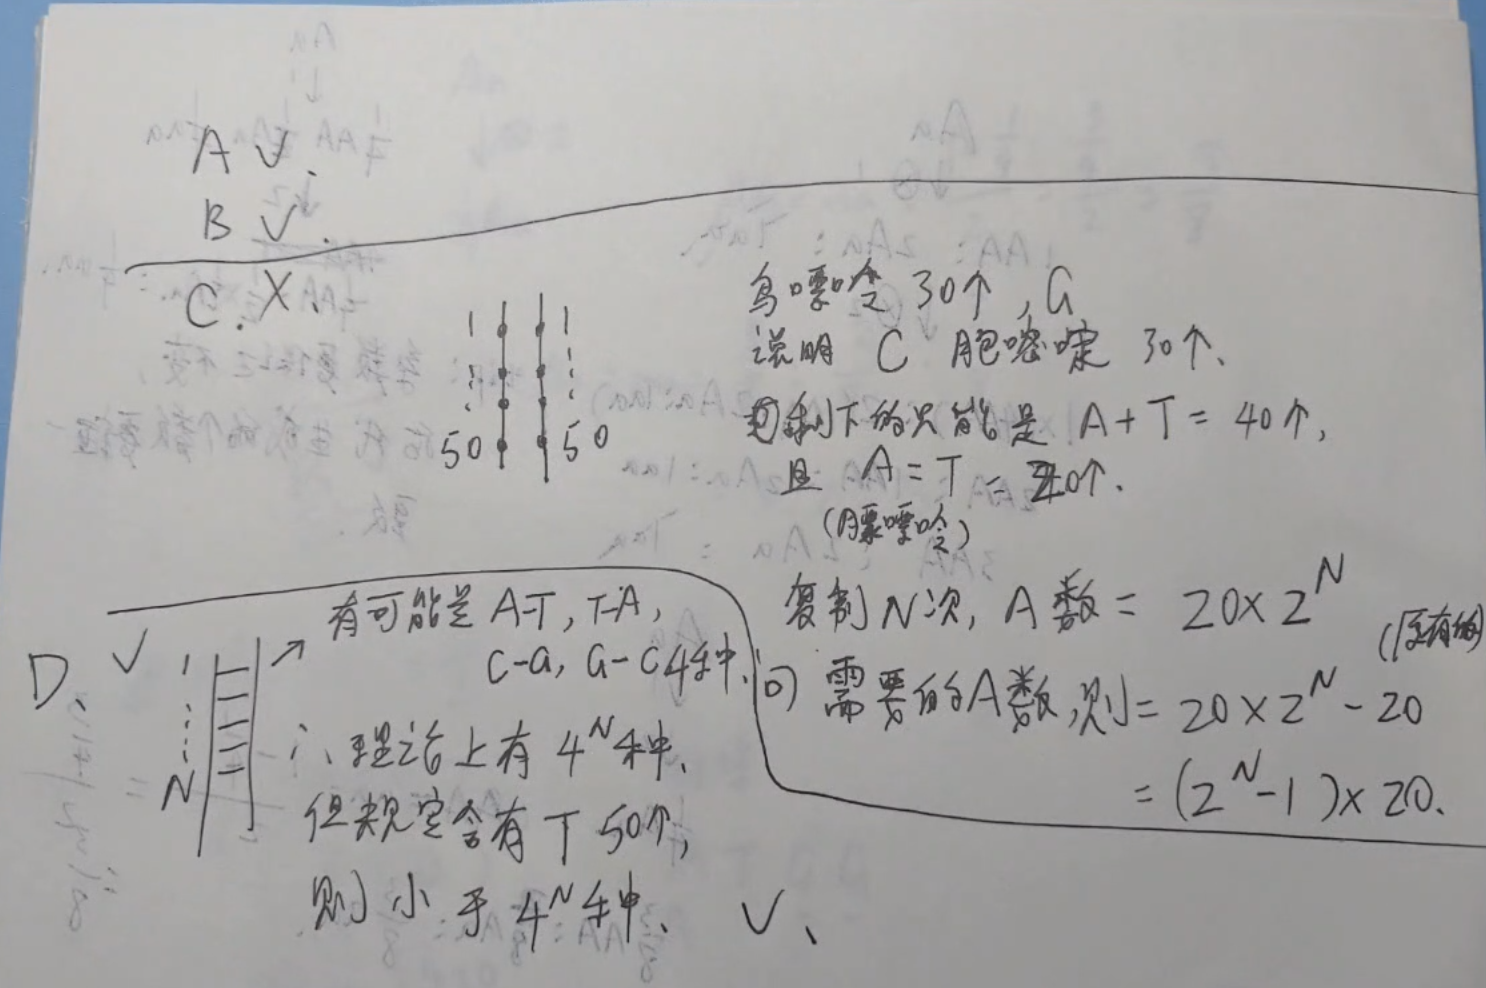 A √.
B √.
C. X.
1 1
50 50
鸟嘌呤 30个, G
说明 C 胞嘧啶 30个.
剩下的只能是 A+T = 40个,
且 A = T = 20个.
(腺嘌呤)
复制N次, A数 = 20×2^N
(原有的)
问 需要的A数,则 = 20×2^N-20
= (2^N-1)×20.
D. √
1
N
有可能是 A-T, T-A,
C-G, G-C 4种.
∴ 理论上有 4^N种.
但规定含有 T 50个,
则小于 4^N种. √.